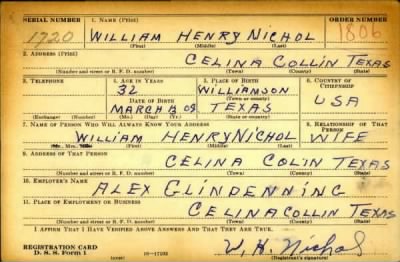 SERIAL NUMBER 1. NAME (Print) ORDER NUMBER
1720 WILLIAM HENRY NICHOL 1806
(First) (Middle) (Last)
2. ADDRESS (Print)
CELINA COLLIN TEXAS
(Number and street or R. F. D. number) (Town) (County) (State)
3. TELEPHONE 4. AGE IN YEARS 5. PLACE OF BIRTH 6. COUNTRY OF CITIZENSHIP
32 WILLIAMSON
(Town or county)
DATE OF BIRTH
MARCH 09 TEXAS USA
(Exchange) (Number) (Mo.) (Day) (Yr.) (State or country)
7. NAME OF PERSON WHO WILL ALWAYS KNOW YOUR ADDRESS 8. RELATIONSHIP OF THAT PERSON
WILLIAM HENRY NICHOL WIFE
(First) (Middle) (Last)
9. ADDRESS OF THAT PERSON
CELINA COLIN TEXAS
(Number and street or R. F. D. number) (Town) (County) (State)
10. EMPLOYER'S NAME
ALEX GLINDENNING
11. PLACE OF EMPLOYMENT OR BUSINESS
CELINA COLLIN TEXAS
(Number and street or R. F. D. number) (Town) (County) (State)
I AFFIRM THAT I HAVE VERIFIED ABOVE ANSWERS AND THAT THEY ARE TRUE.
REGISTRATION CARD
D. S. S. Form 1 W. H. Nichol
(Registrant's signature)